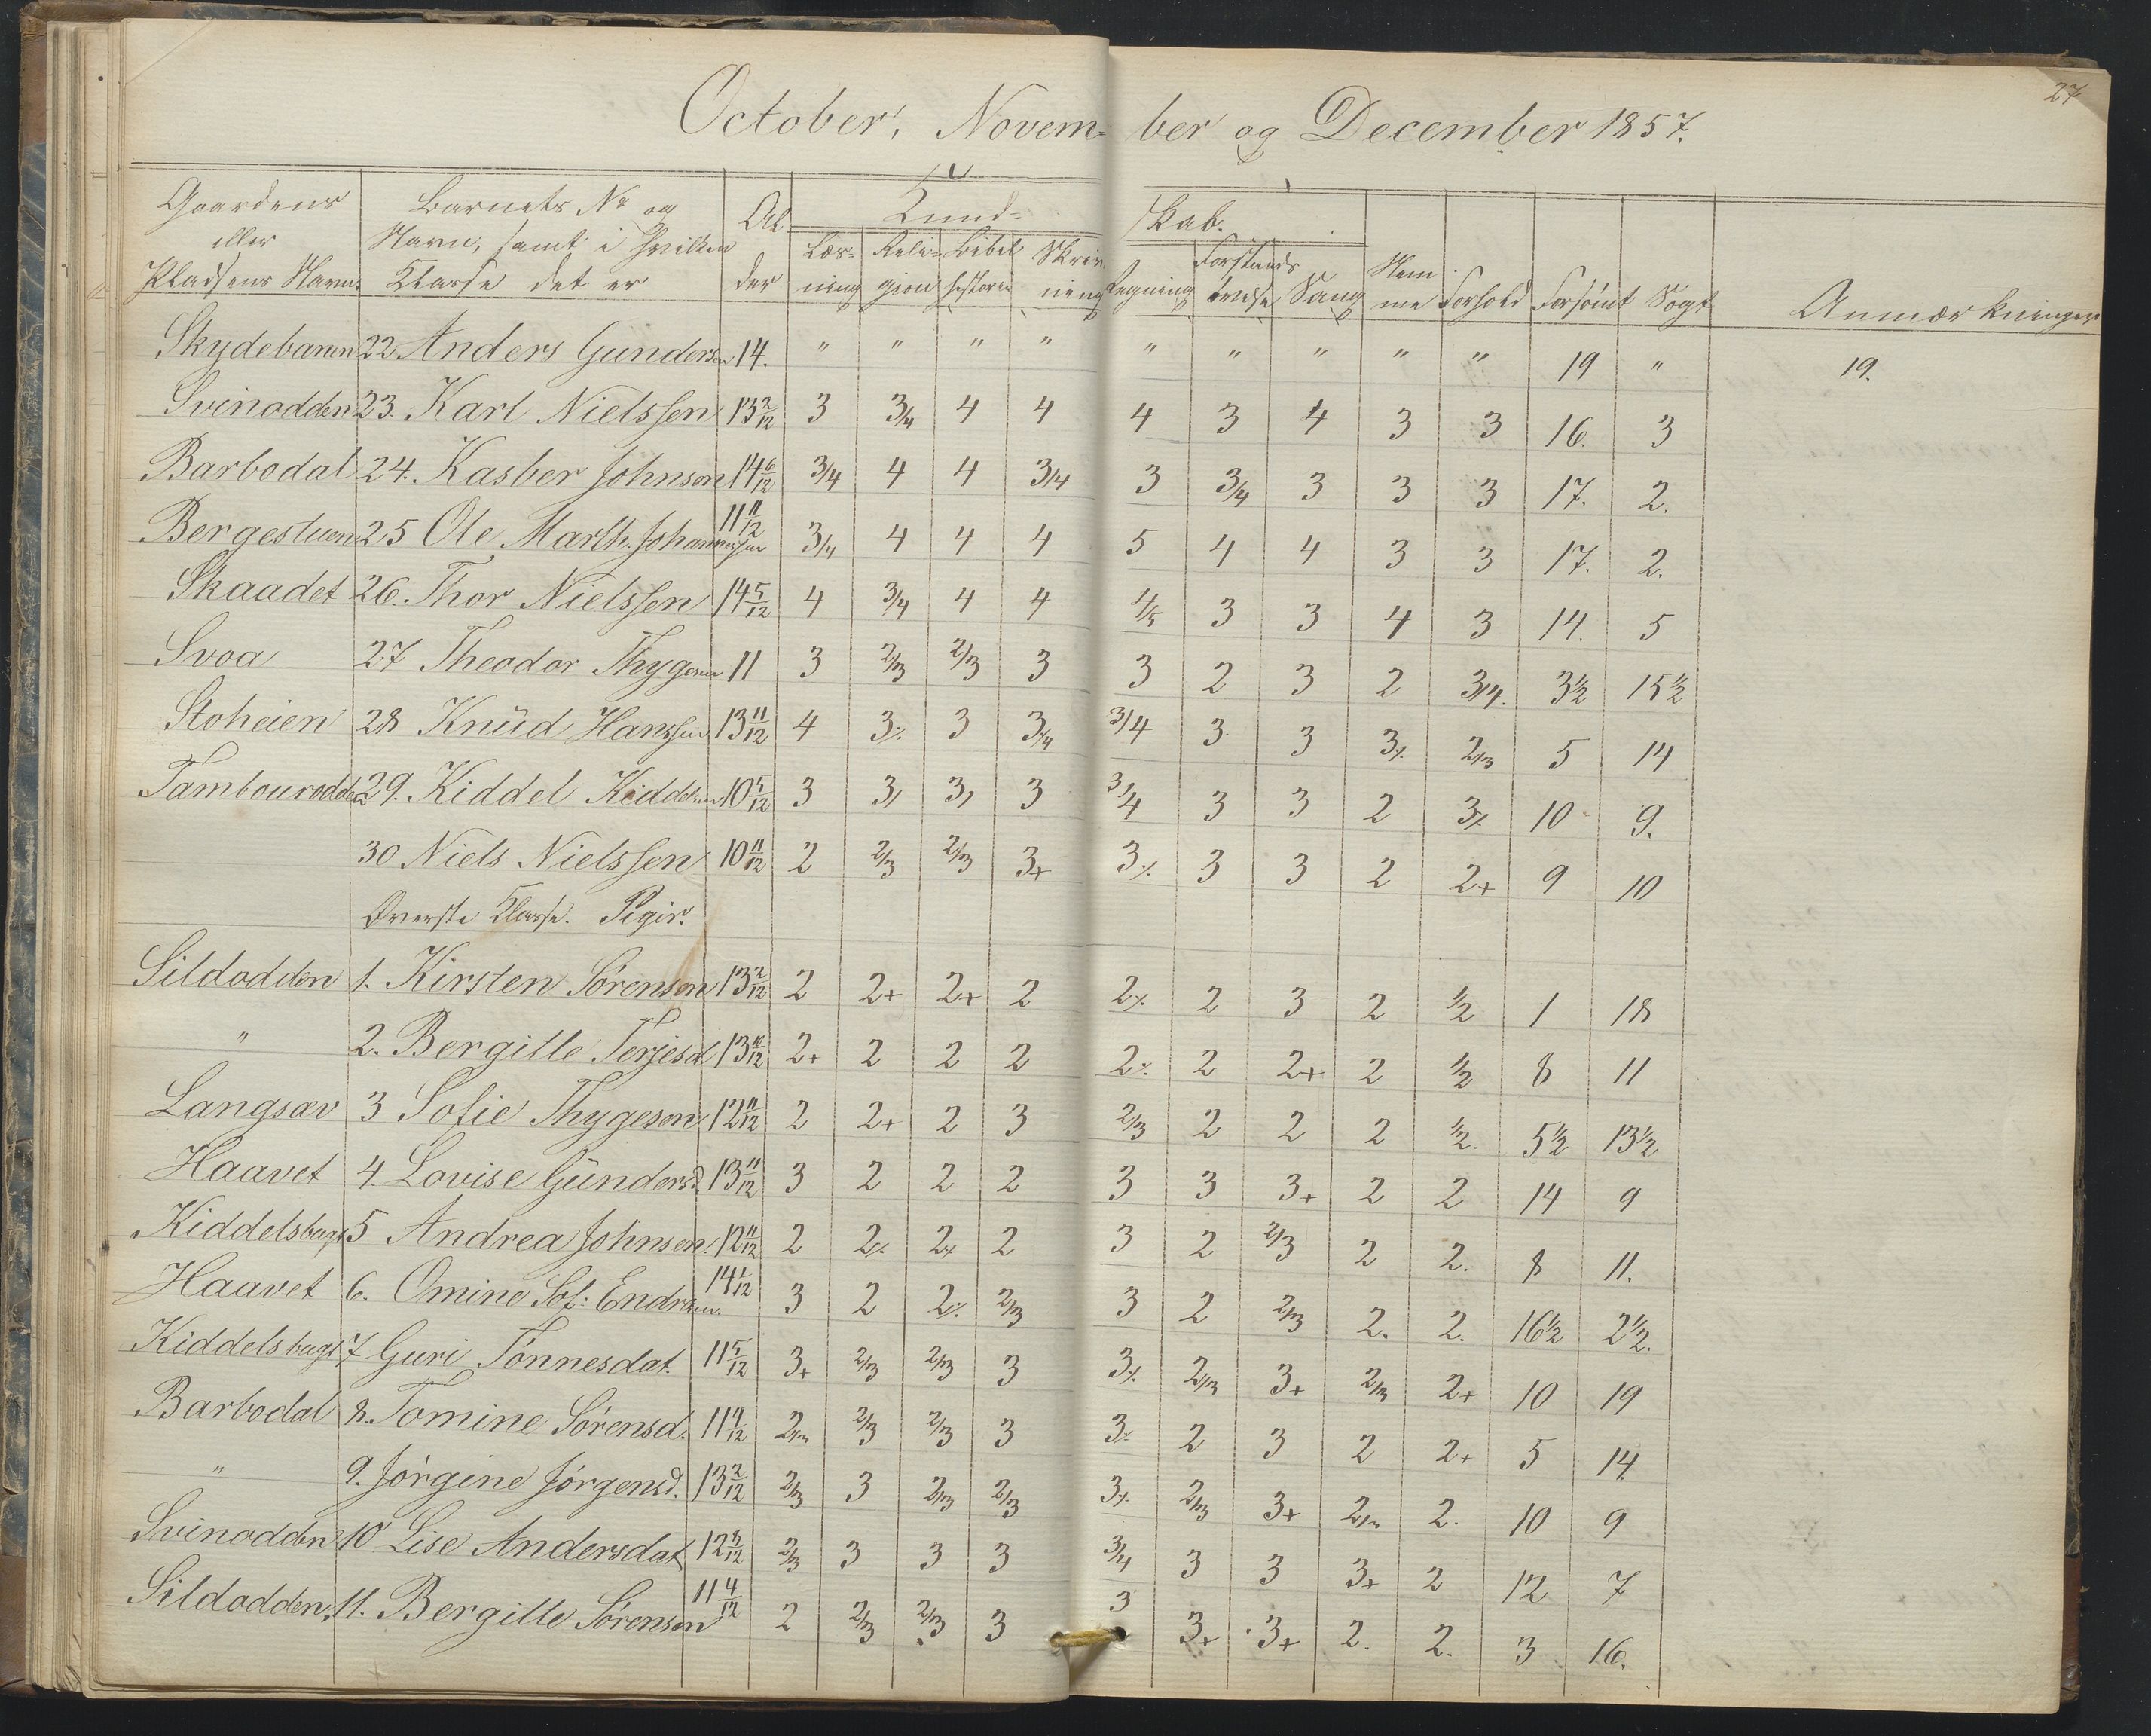 27
October, November og December 1857.
Gaardens eller Pladsens Navn. Barnets No og Navn, samt i hvilken Klasse det er Alder Kundskab. Læsning Religion Bibelhistorie Skrivning Regning Forstandsøvelse Sang Nemme Forhold Forsømt Søgt Anmærkninger
Skydebanen 22 Anders Gundersen 14. " " " " " " " " " 19 " 19.
Svinodden 23. Karl Nielssen 13 2/12 3 3/4 4 4 4 3 4 3 3 16. 3
Barbodal 24. Kasber Johnson 14 6/12 3/4 4 4 3/4 3 3/4 3 3 3 17. 2.
Bergestuen 25 Ole Marth. Johannessen 11 11/12 3/4 4 4 4 5 4 4 3 3 17. 2.
Skaadet 26. Thor Nielssen 14 5/12 4 3/4 4 4 4/5 3 3 4 3 14. 5
Svoa 27 Theodor Thygesen 11 3 2/3 2/3 3 3 2 3 2 3/4. 3 1/2 15 1/2
Stoheien 28 Knüd Hanssen 13 11/12 4 3% 3 3/4 3/4 3 3 3% 2/3 5 14
Tambourodden 29. Kiddel Kiddelsen 10 5/12 3 3, 3, 3 3/4 3 3 2 3% 10 9.
30 Niels Nielssen 10 11/12 2 2/3 2/3 3+ 3% 3 3 2 2+ 9 10
Øverste Klasse. Piger.
Sildodden 1. Kirsten Sörenson 13 2/12 2 2+ 2+ 2 2% 2 3 2 1/2 1 18
" 2. Bergitte Terjesd 13 10/12 2+ 2 2 2 2% 2 2+ 2 1/2 8 11
Langsæv 3 Sofie Thygeson 12 11/12 2 2+ 2 3 2/3 2 2 2 1/2. 5 1/2 13 1/2
Haavet 4. Lovise Gündersd. 13 11/12 3 2 2 2 3 3 3+ 2 2 14 9
Kiddelsbugt 5 Andrea Johnsen. 12 11/12 2 2% 2+ 2 3 2 2/3 2 2. 8 11.
Haavet 6. Omine Sof: Endresen. 14 1/12 3 2 2% 2/3 3 2 2/3 2. 2. 16 1/2 2 1/2.
Kiddelsbugt 7 Guri Tönnesdat. 11 5/12 3+ 2/3 2/3 3 3% 2/3 3+ 2/3 2+ 10 19
Barbodal 8. Tomine Sörensd. 11 9/12 2/3 2/3 2/3 3 3% 2 3 2 2+ 5 14.
" 9. Jörgine Jörgensd. 13 2/12 2/3 3 2/3 2/3 3% 2/3 3+ 2/3 2. 10 9
Svinodden 10 Lise Andersdat 12 8/12 2/3 3 3 3 3/4 3 3 3+ 2 12 7
Sildodden, 11. Bergitte Sörenson 11 4/12 2 2/3 2/3 3 3 3+ 3+ 2. 2. 3 16.